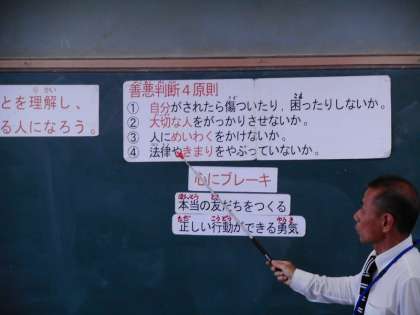 とを理解し、
る人になろう。
善悪判断４原則
① 自分がされたら傷ついたり、困ったりしないか。
② 大切な人をがっかりさせないか。
③ 人にめいわくをかけないか。
④ 法律やきまりをやぶっていないか。
心にブレーキ
本当の友だちをつくる
正しい行動ができる勇気